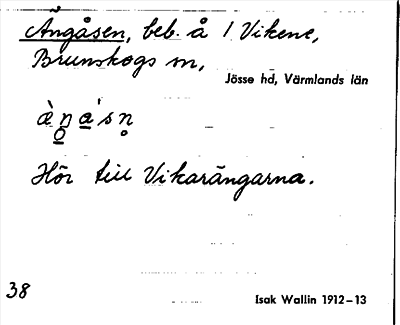 Ängåsen, beb. å 1 Vikene,
Brunskogs sn,
Jösse hd, Värmlands län
Hör till Vikarängarna.
38
Isak Wallin 1912–13